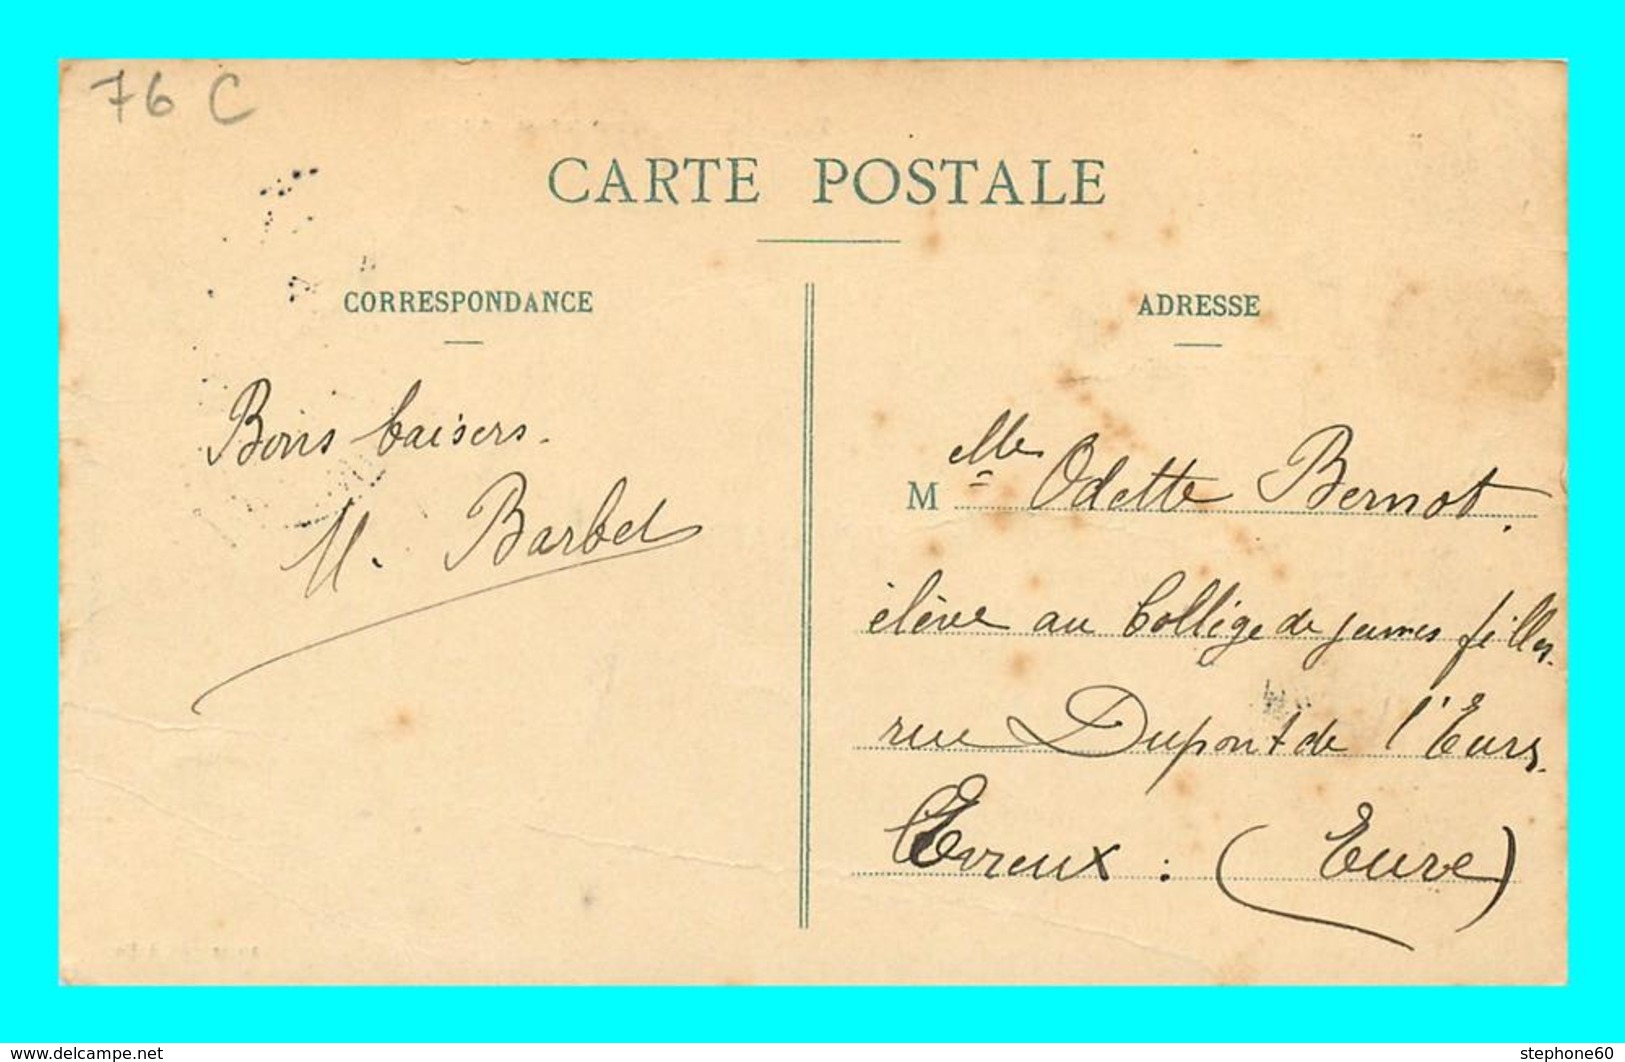 76 C
CARTE POSTALE
CORRESPONDANCE
ADRESSE
Bons baisers.
M. Barbet
Mlle Odette Bernot.
élève au Collège de jeunes filles.
rue Dupont de l'Eure.
Evreux : (Eure)
www.delcampe.net
stephone60